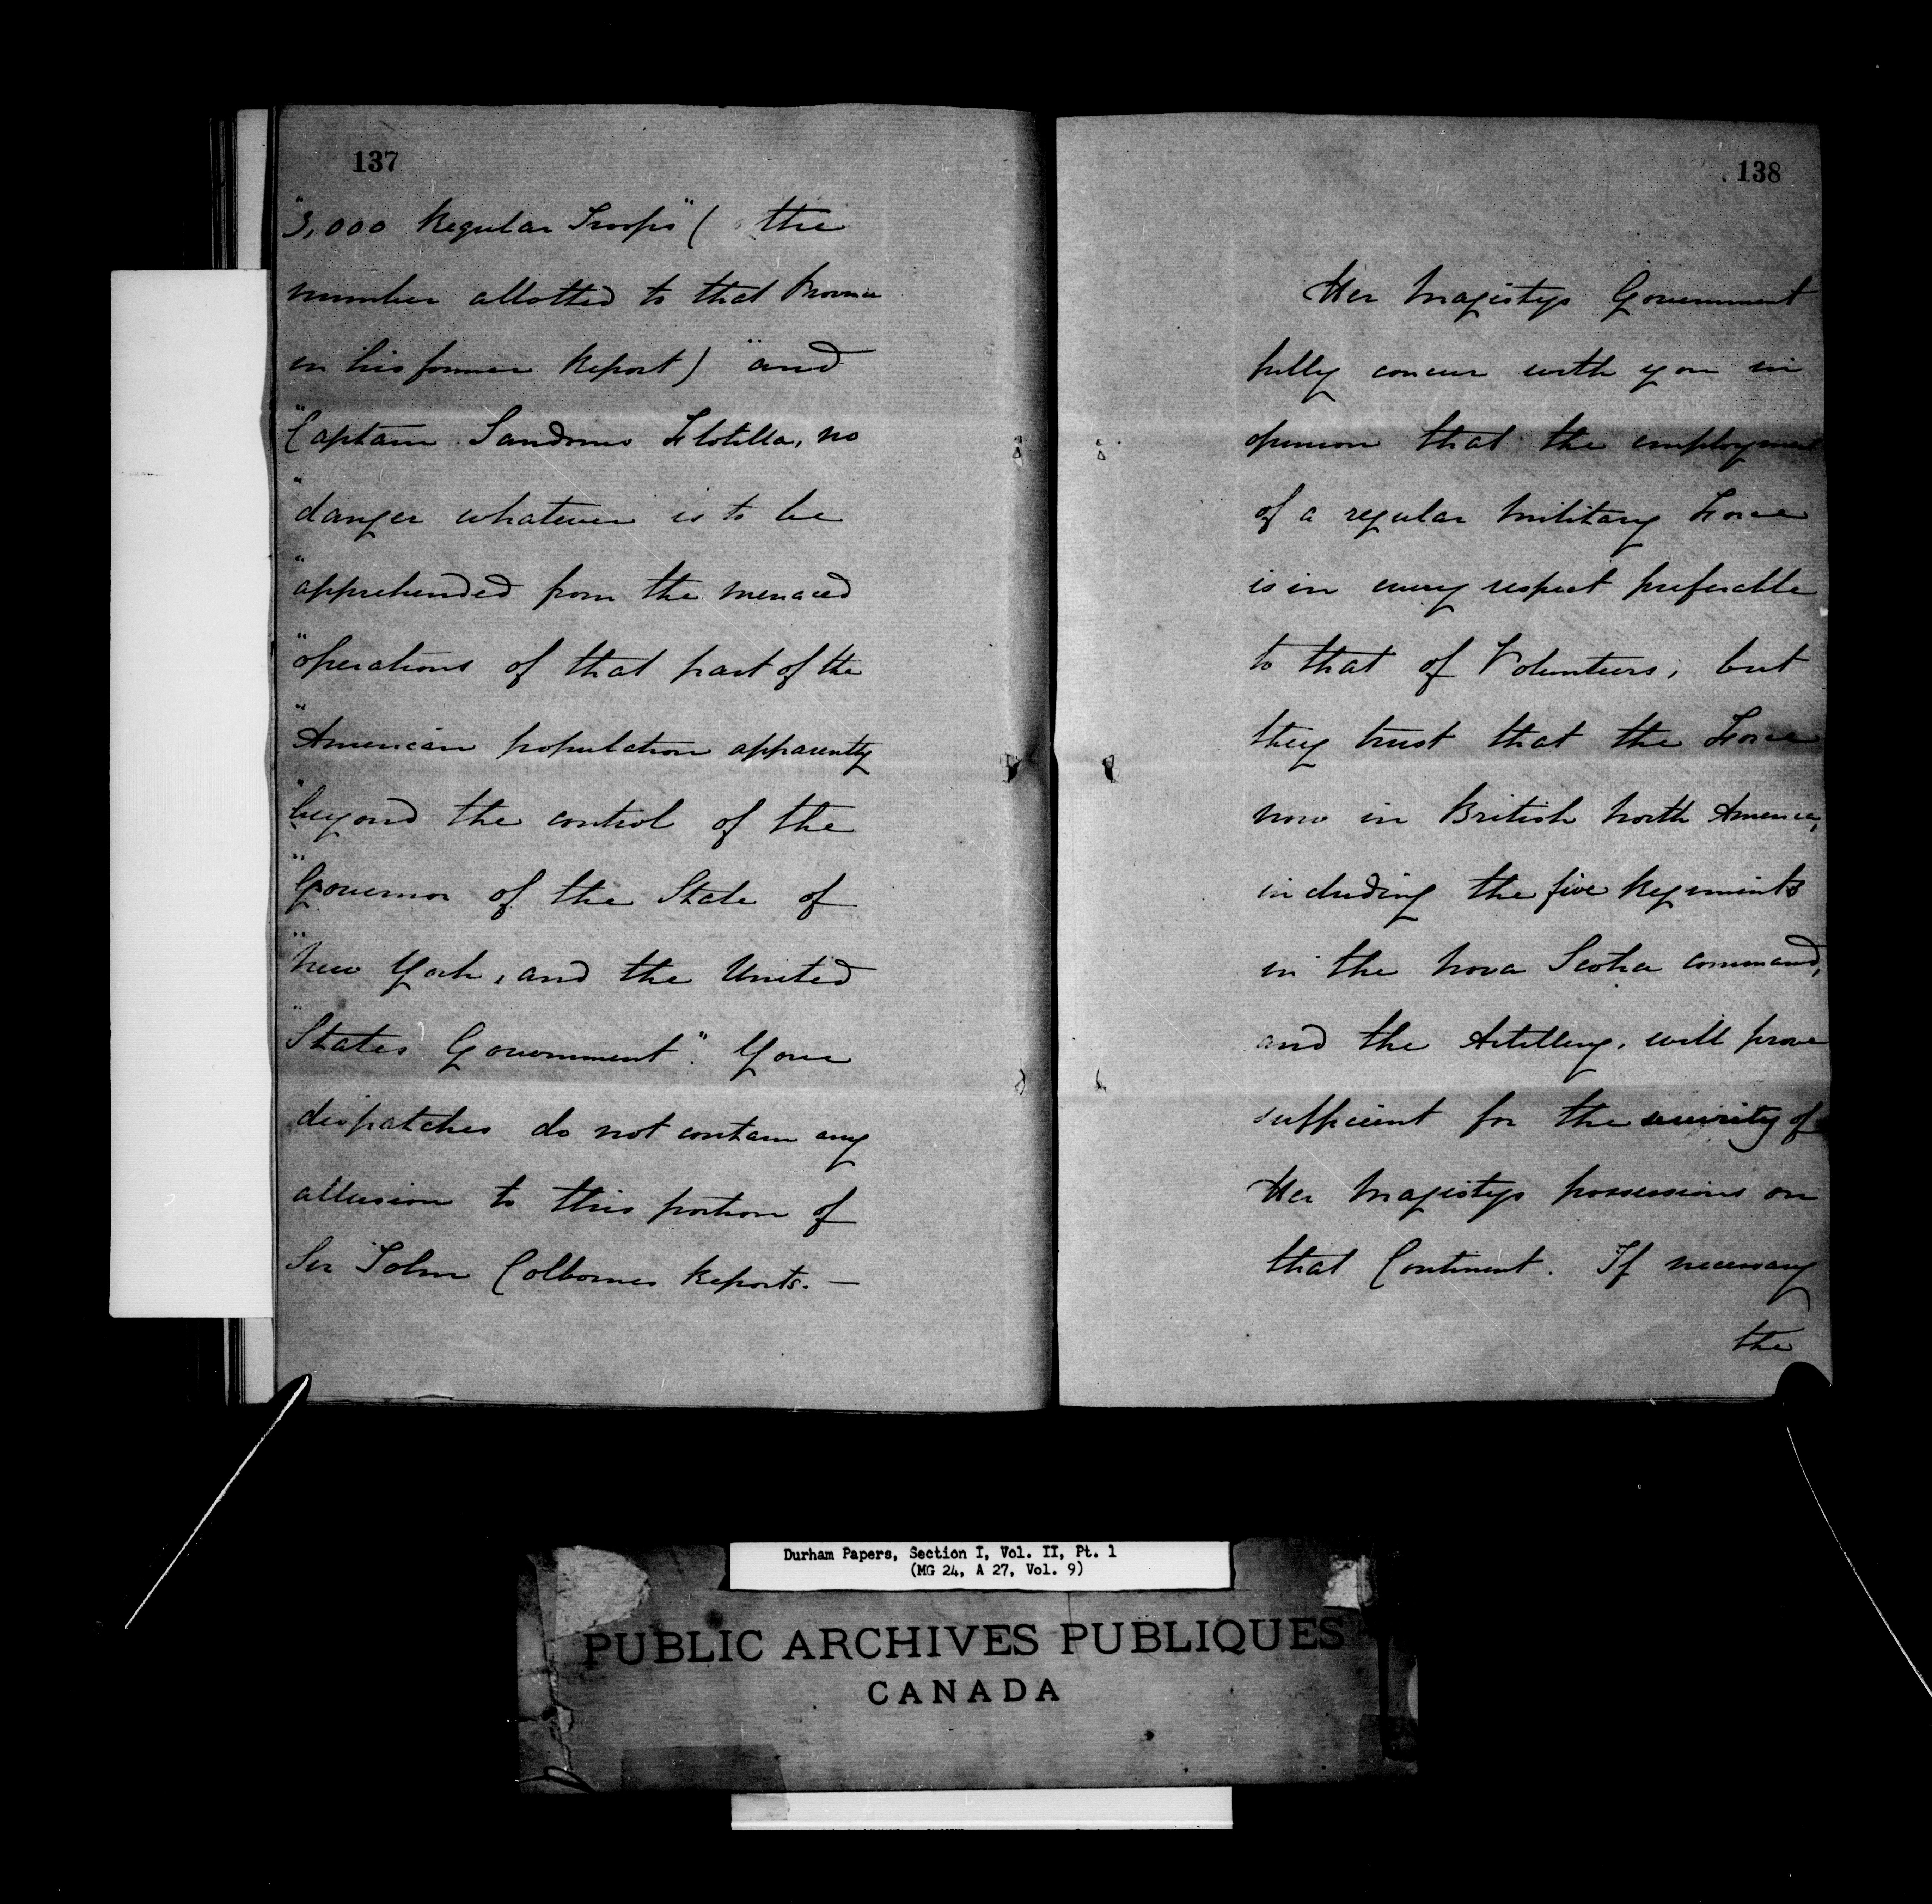 137
"3,000 Regular Troops" ( the
number allotted to that Province
in his former Report) "and
"Captain Sandoms Flotilla, no
"danger whatever is to be
"apprehended from the menaced
"operations of that part of the
"American population apparently
"beyond the control of the
"Governor of the State of
"New York, and the United
"States Government". Your
dispatches do not contain any
allusion to this portion of
Sir John Colbornes Reports. —
138
Her Majestys Government
fully concur with you in
opinion that the employment
of a regular Military Force
is in every respect preferable
to that of Volunteers; but
they trust that the Force
now in British North America,
including the five Regiments
in the Nova Scotia command,
and the Artillery, will prove
sufficient for the security of
Her Majestys possessions on
that Continent. If necessary
the
Durham Papers, Section I, Vol. II, Pt. 1
(MG 24, A 27, Vol. 9)
PUBLIC ARCHIVES PUBLIQUES
CANADA